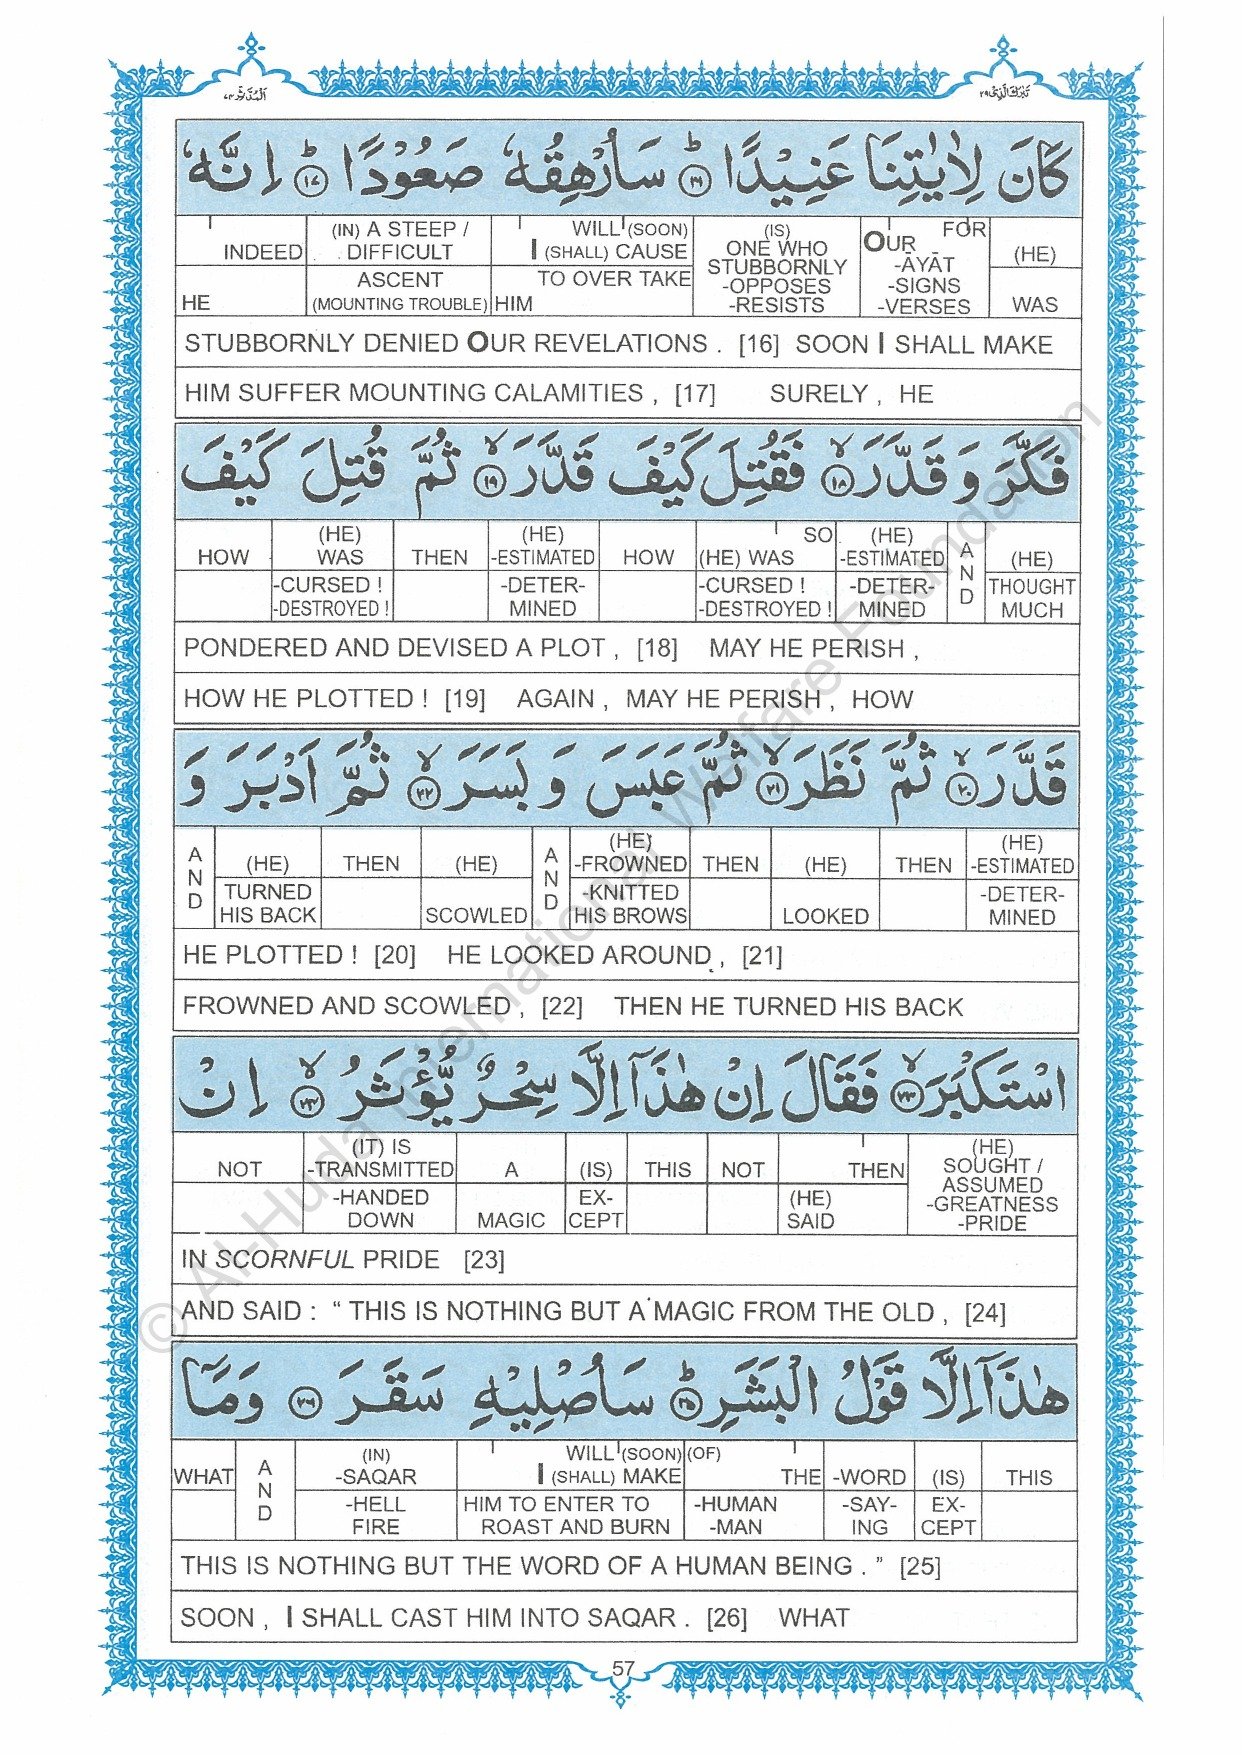 المدثر ٧٤
تبرك الذی ٢٩
كَانَ لِاٰيٰتِنَا عَنِيْدًا ؕ ١٦ سَاُرْهِقُهٗ صَعُوْدًا ؕ ١٧ اِنَّهٗ
INDEED (IN) A STEEP / DIFFICULT WILL (SOON) I (SHALL) CAUSE (IS) ONE WHO STUBBORNLY -OPPOSES -RESISTS OUR FOR -ĀYĀT -SIGNS -VERSES (HE)
HE ASCENT (MOUNTING TROUBLE) TO OVER TAKE HIM WAS
STUBBORNLY DENIED OUR REVELATIONS . [16] SOON I SHALL MAKE
HIM SUFFER MOUNTING CALAMITIES , [17] SURELY , HE
فَكَّرَ وَ قَدَّرَ ۙ ١٨ فَقُتِلَ كَيْفَ قَدَّرَ ۙ ١٩ ثُمَّ قُتِلَ كَيْفَ
HOW (HE) WAS THEN (HE) -ESTIMATED HOW SO (HE) WAS (HE) -ESTIMATED AND (HE)
-CURSED ! -DESTROYED ! -DETER- MINED -CURSED ! -DESTROYED ! -DETER- MINED THOUGHT MUCH
PONDERED AND DEVISED A PLOT , [18] MAY HE PERISH ,
HOW HE PLOTTED ! [19] AGAIN , MAY HE PERISH , HOW
قَدَّرَ ۙ ٢٠ ثُمَّ نَظَرَ ۙ ٢١ ثُمَّ عَبَسَ وَ بَسَرَ ۙ ٢٢ ثُمَّ اَدْبَرَ وَ
AND (HE) THEN (HE) AND (HE) -FROWNED THEN (HE) THEN (HE) -ESTIMATED
TURNED HIS BACK SCOWLED -KNITTED HIS BROWS LOOKED -DETER- MINED
HE PLOTTED ! [20] HE LOOKED AROUND , [21]
FROWNED AND SCOWLED , [22] THEN HE TURNED HIS BACK
اسْتَكْبَرَ ۙ ٢٣ فَقَالَ اِنْ هٰذَاۤ اِلَّا سِحْرٌ يُّؤْثَرُ ۙ ٢٤ اِنْ
NOT (IT) IS -TRANSMITTED A (IS) THIS NOT THEN (HE) SOUGHT / ASSUMED -GREATNESS -PRIDE
-HANDED DOWN MAGIC EX- CEPT (HE) SAID
IN SCORNFUL PRIDE [23]
AND SAID : “ THIS IS NOTHING BUT A MAGIC FROM THE OLD , [24]
هٰذَاۤ اِلَّا قَوْلُ الْبَشَرِ ؕ ٢٥ سَاُصْلِيْهِ سَقَرَ ٢٦ وَمَاۤ
WHAT AND (IN) -SAQAR WILL (SOON) I (SHALL) MAKE (OF) THE -WORD (IS) THIS
-HELL FIRE HIM TO ENTER TO ROAST AND BURN -HUMAN -MAN -SAY- ING EX- CEPT
THIS IS NOTHING BUT THE WORD OF A HUMAN BEING . ” [25]
SOON , I SHALL CAST HIM INTO SAQAR . [26] WHAT
57
© Al-Huda International Welfare Foundation